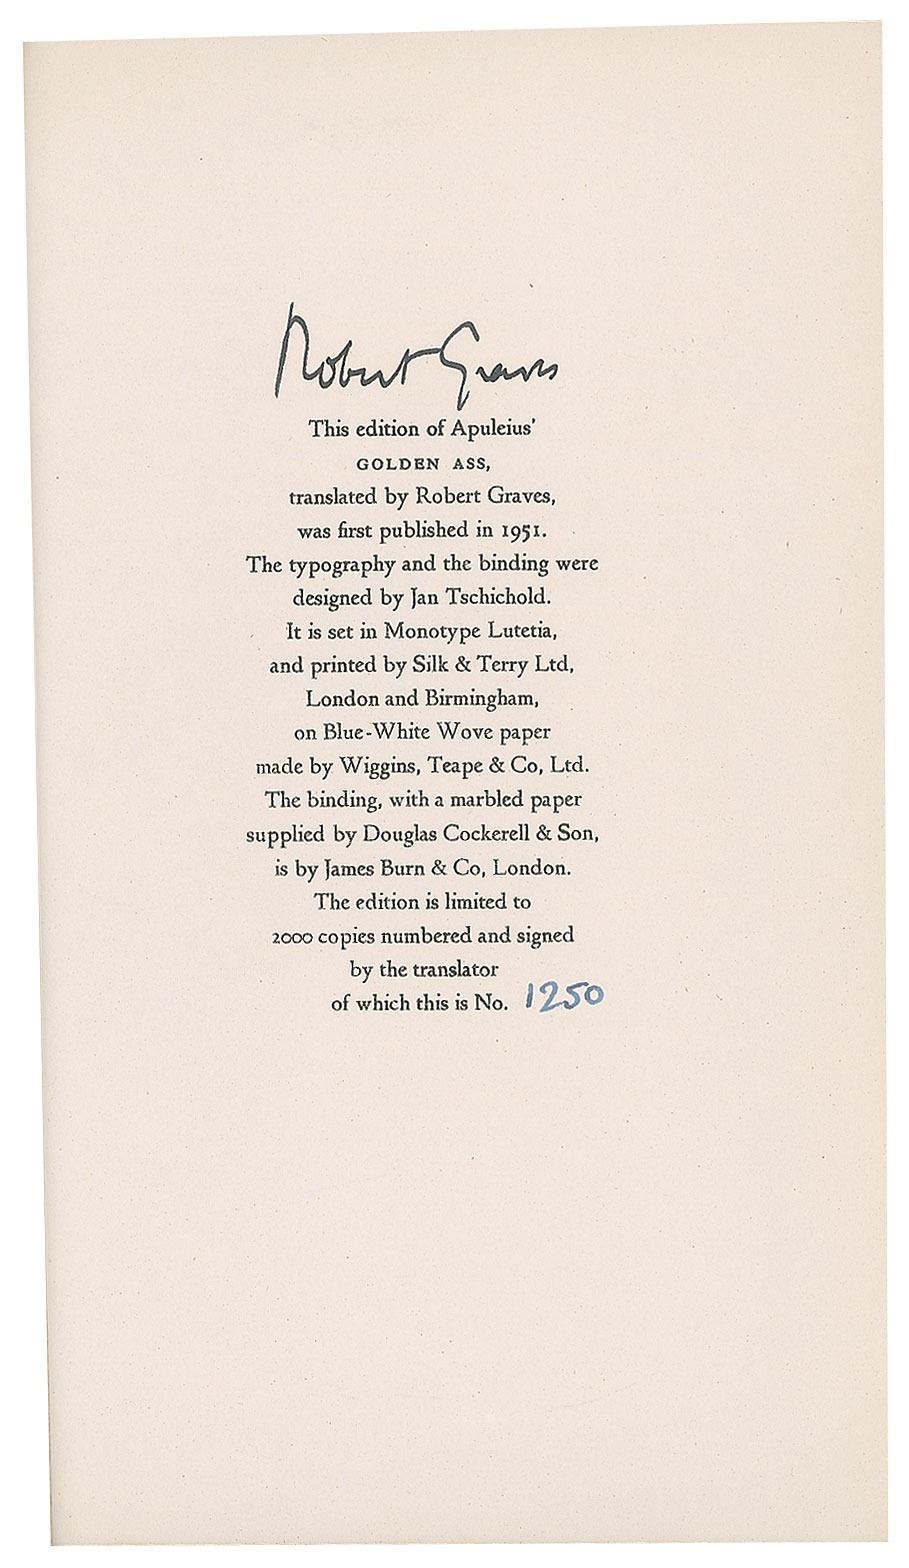 Robert Graves
This edition of Apuleius'
GOLDEN ASS,
translated by Robert Graves,
was first published in 1951.
The typography and the binding were
designed by Jan Tschichold.
It is set in Monotype Lutetia,
and printed by Silk & Terry Ltd,
London and Birmingham,
on Blue-White Wove paper
made by Wiggins, Teape & Co, Ltd.
The binding, with a marbled paper
supplied by Douglas Cockerell & Son,
is by James Burn & Co, London.
The edition is limited to
2000 copies numbered and signed
by the translator
of which this is No. 1250